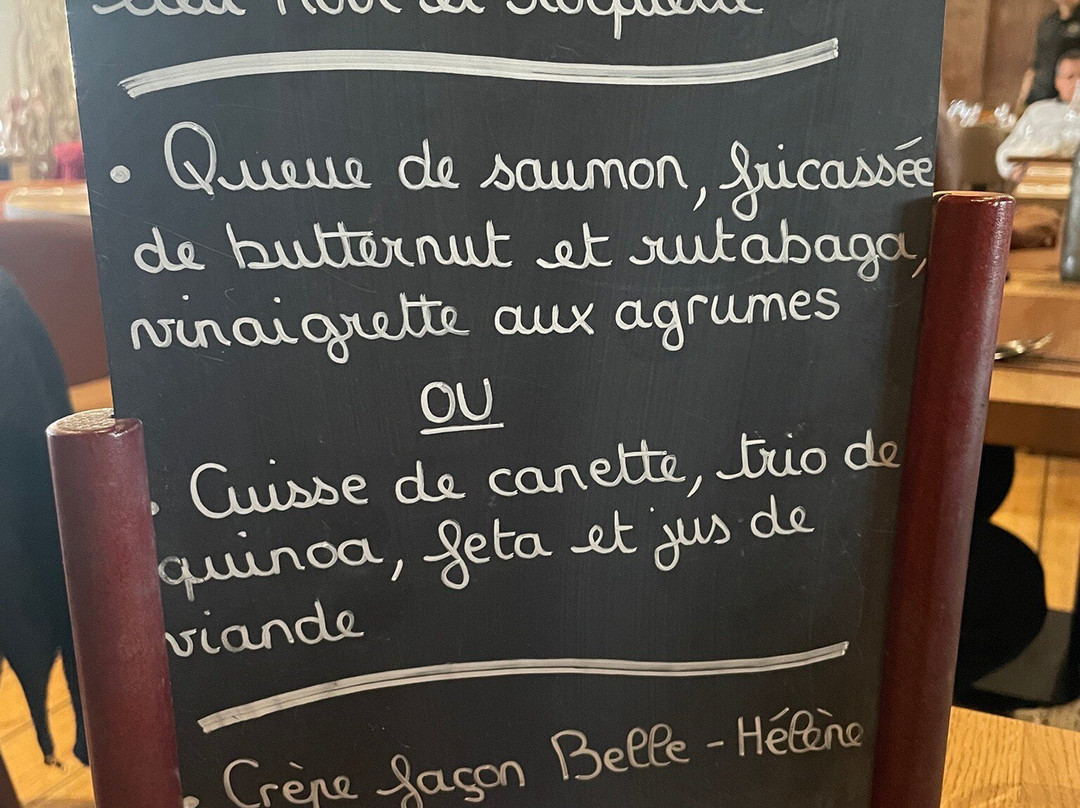 et Roquette
• Queue de saumon, fricassée
de butternut et rutabaga,
vinaigrette aux agrumes
OU
• Cuisse de canette, trio de
quinoa, feta et jus de
viande
• Crêpe façon Belle-Hélène